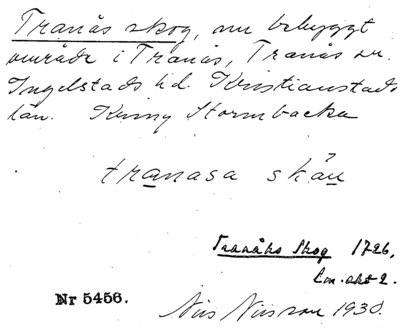 Tranås skog, nu bebyggt
område i Tranås, Tranås sn.
Ingelstads hd. Kristianstads
län. Kring Stormbacka
tranasa skåu
Tranåhs Skog 1726,
Lm. akt 2.
Nr 5456.
Nils Nilsson 1930.